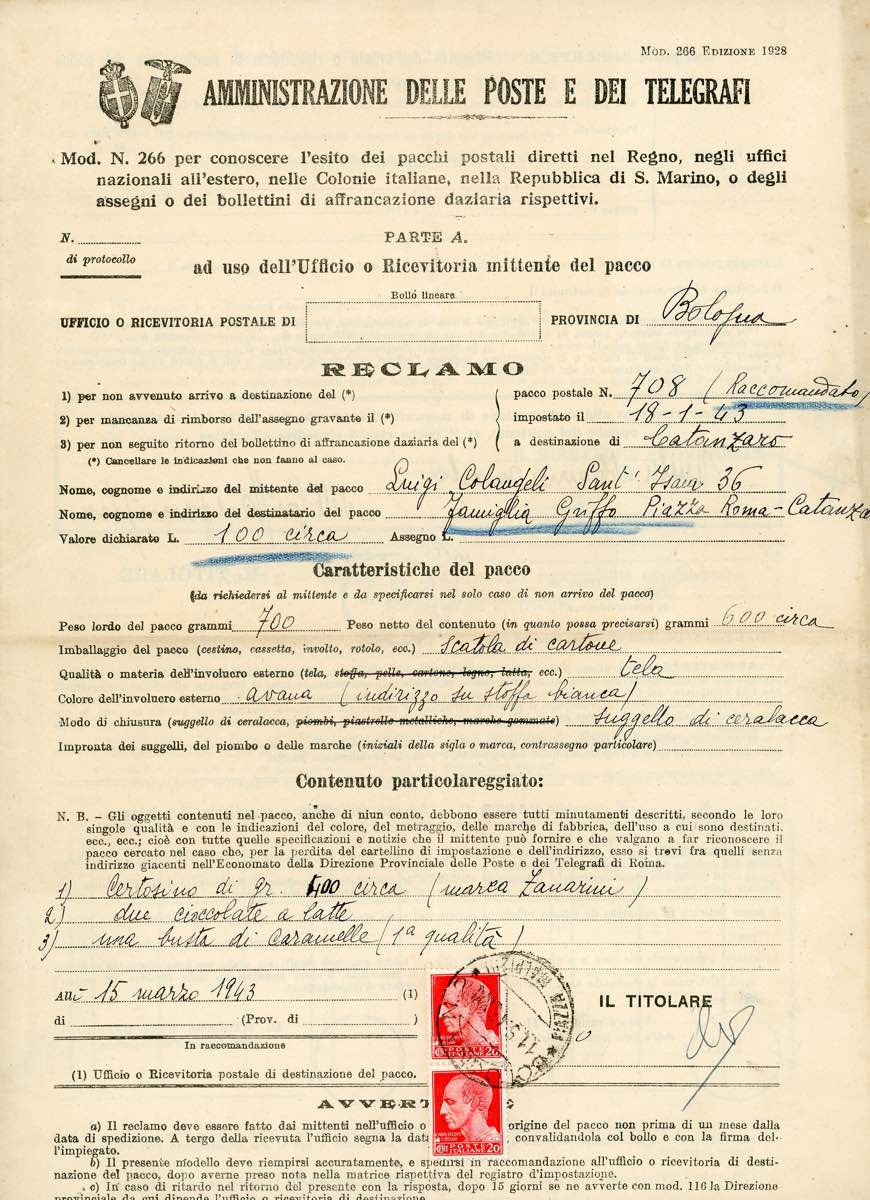 MOD. 266 EDIZIONE 1928
AMMINISTRAZIONE DELLE POSTE E DEI TELEGRAFI
Mod. N. 266 per conoscere l'esito dei pacchi postali diretti nel Regno, negli uffici
nazionali all'estero, nelle Colonie italiane, nella Repubblica di S. Marino, o degli
assegni o dei bollettini di affrancazione daziaria rispettivi.
N.
di protocollo
PARTE A.
ad uso dell'Ufficio o Ricevitoria mittente del pacco
Bollo lineare
UFFICIO O RICEVITORIA POSTALE DI
PROVINCIA DI Bologna
RECLAMO
1) per non avvenuto arrivo a destinazione del (*)
pacco postale N. 708 (Raccomandato)
2) per mancanza di rimborso dell'assegno gravante il (*)
impostato il 18-1-43
3) per non seguito ritorno del bollettino di affrancazione daziaria del (*)
a destinazione di Catanzaro
(*) Cancellare le indicazioni che non fanno al caso.
Nome, cognome e indirizzo del mittente del pacco Luigi Colangeli Sant' Isaia 36
Nome, cognome e indirizzo del destinatario del pacco Famiglia Griffo Piazza Roma - Catanza
Valore dichiarato L. 100 circa Assegno L.
Caratteristiche del pacco
(da richiedersi al mittente e da specificarsi nel solo caso di non arrivo del pacco)
Peso lordo del pacco grammi 700 Peso netto del contenuto (in quanto possa precisarsi) grammi 600 circa
Imballaggio del pacco (cestino, cassetta, involto, rotolo, ecc.) scatola di cartone
Qualità o materia dell'involucro esterno (tela, stoffa, pelle, cartone, legno, latta, ecc.) tela
Colore dell'involucro esterno avana (indirizzo su stoffa bianca)
Modo di chiusura (suggello di ceralacca, piombi, piastrelle metalliche, marche gommate) suggello di ceralacca
Impronta dei suggelli, del piombo o delle marche (iniziali della sigla o marca, contrassegno particolare)
Contenuto particolareggiato:
N. B. - Gli oggetti contenuti nel pacco, anche di niun conto, debbono essere tutti minutamenti descritti, secondo le loro
singole qualità e con le indicazioni del colore, del metraggio, delle marche di fabbrica, dell'uso a cui sono destinati.
ecc., ecc.; cioè con tutte quelle specificazioni e notizie che il mittente può fornire e che valgano a far riconoscere il
pacco cercato nel caso che, per la perdita del cartellino di impostazione e dell'indirizzo, esso si trovi fra quelli senza
indirizzo giacenti nell'Economato della Direzione Provinciale delle Poste e dei Telegrafi di Roma.
1) Certosino di gr. 400 circa (marca Zanarini)
2) due cioccolate a latte
3) una busta di caramelle (1ª qualità)
Alli 15 marzo 1943 (1)
di (Prov. di )
IL TITOLARE
In raccomandazione
(1) Ufficio o Ricevitoria postale di destinazione del pacco.
POSTE ITALIANE 20
POSTE ITALIANE 20
AVVERT
a) Il reclamo deve essere fatto dai mittenti nell'ufficio o origine del pacco non prima di un mese dalla
data di spedizione. A tergo della ricevuta l'ufficio segna la dat convalidandola col bollo e con la firma del-
l'impiegato.
b) Il presente modello deve riempirsi accuratamente, e spedirsi in raccomandazione all'ufficio o ricevitoria di desti-
nazione del pacco, dopo averne preso nota nella matrice rispettiva del registro d'impostazione.
c) In caso di ritardo nel ritorno del presente con la risposta, dopo 15 giorni se ne avverte con mod. 116 la Direzione
provinciale da cui dipende l'ufficio o ricevitoria di destinazione.